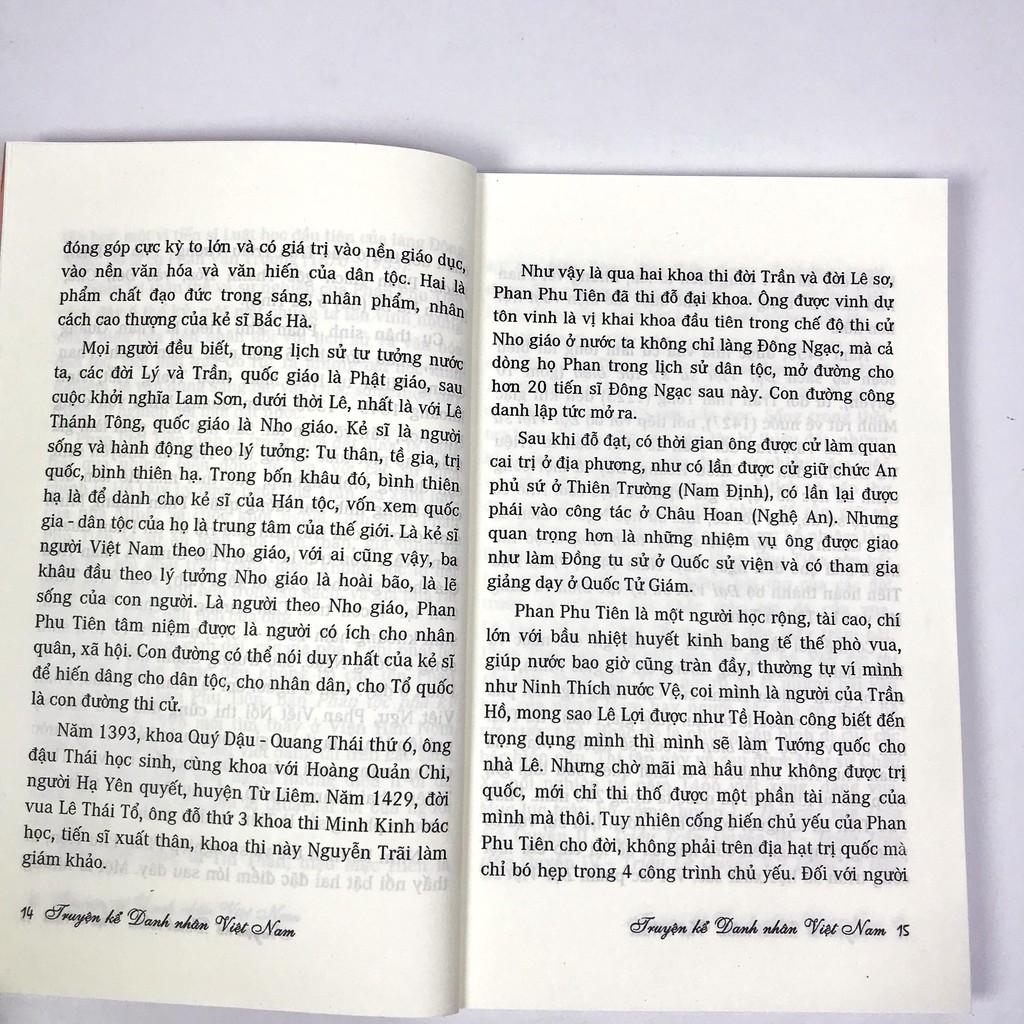 đóng góp cực kỳ to lớn và có giá trị vào nền giáo dục,
vào nền văn hóa và văn hiến của dân tộc. Hai là
phẩm chất đạo đức trong sáng, nhân phẩm, nhân
cách cao thượng của kẻ sĩ Bắc Hà.
Mọi người đều biết, trong lịch sử tư tưởng nước
ta, các đời Lý và Trần, quốc giáo là Phật giáo, sau
cuộc khởi nghĩa Lam Sơn, dưới thời Lê, nhất là với Lê
Thánh Tông, quốc giáo là Nho giáo. Kẻ sĩ là người
sống và hành động theo lý tưởng: Tu thân, tề gia, trị
quốc, bình thiên hạ. Trong bốn khâu đó, bình thiên
hạ là để dành cho kẻ sĩ của Hán tộc, vốn xem quốc
gia - dân tộc của họ là trung tâm của thế giới. Là kẻ sĩ
người Việt Nam theo Nho giáo, với ai cũng vậy, ba
khâu đầu theo lý tưởng Nho giáo là hoài bão, là lẽ
sống của con người. Là người theo Nho giáo, Phan
Phu Tiên tâm niệm được là người có ích cho nhân
quân, xã hội. Con đường có thể nói duy nhất của kẻ sĩ
để hiến dâng cho dân tộc, cho nhân dân, cho Tổ quốc
là con đường thi cử.
Năm 1393, khoa Quý Dậu - Quang Thái thứ 6, ông
đậu Thái học sinh, cùng khoa với Hoàng Quản Chi,
người Hạ Yên quyết, huyện Từ Liêm. Năm 1429, đời
vua Lê Thái Tổ, ông đỗ thứ 3 khoa thi Minh Kinh bác
học, tiến sĩ xuất thân, khoa thi này Nguyễn Trãi làm
giám khảo.
14 Truyện kể Danh nhân Việt Nam
Như vậy là qua hai khoa thi đời Trần và đời Lê sơ,
Phan Phu Tiên đã thi đỗ đại khoa. Ông được vinh dự
tôn vinh là vị khai khoa đầu tiên trong chế độ thi cử
Nho giáo ở nước ta không chỉ làng Đông Ngạc, mà cả
dòng họ Phan trong lịch sử dân tộc, mở đường cho
hơn 20 tiến sĩ Đông Ngạc sau này. Con đường công
danh lập tức mở ra.
Sau khi đỗ đạt, có thời gian ông được cử làm quan
cai trị ở địa phương, như có lần được cử giữ chức An
phủ sứ ở Thiên Trường (Nam Định), có lần lại được
phái vào công tác ở Châu Hoan (Nghệ An). Nhưng
quan trọng hơn là những nhiệm vụ ông được giao
như làm Đồng tu sử ở Quốc sử viện và có tham gia
giảng dạy ở Quốc Tử Giám.
Phan Phu Tiên là một người học rộng, tài cao, chí
lớn với bầu nhiệt huyết kinh bang tế thế phò vua,
giúp nước bao giờ cũng tràn đầy, thường tự ví mình
như Ninh Thích nước Vệ, coi mình là người của Trần
Hồ, mong sao Lê Lợi được như Tề Hoàn công biết đến
trọng dụng mình thì mình sẽ làm Tướng quốc cho
nhà Lê. Nhưng chờ mãi mà hầu như không được trị
quốc, mới chỉ thi thố được một phần tài năng của
mình mà thôi. Tuy nhiên cống hiến chủ yếu của Phan
Phu Tiên cho đời, không phải trên địa hạt trị quốc mà
chỉ bó hẹp trong 4 công trình chủ yếu. Đối với người
Truyện kể Danh nhân Việt Nam 15